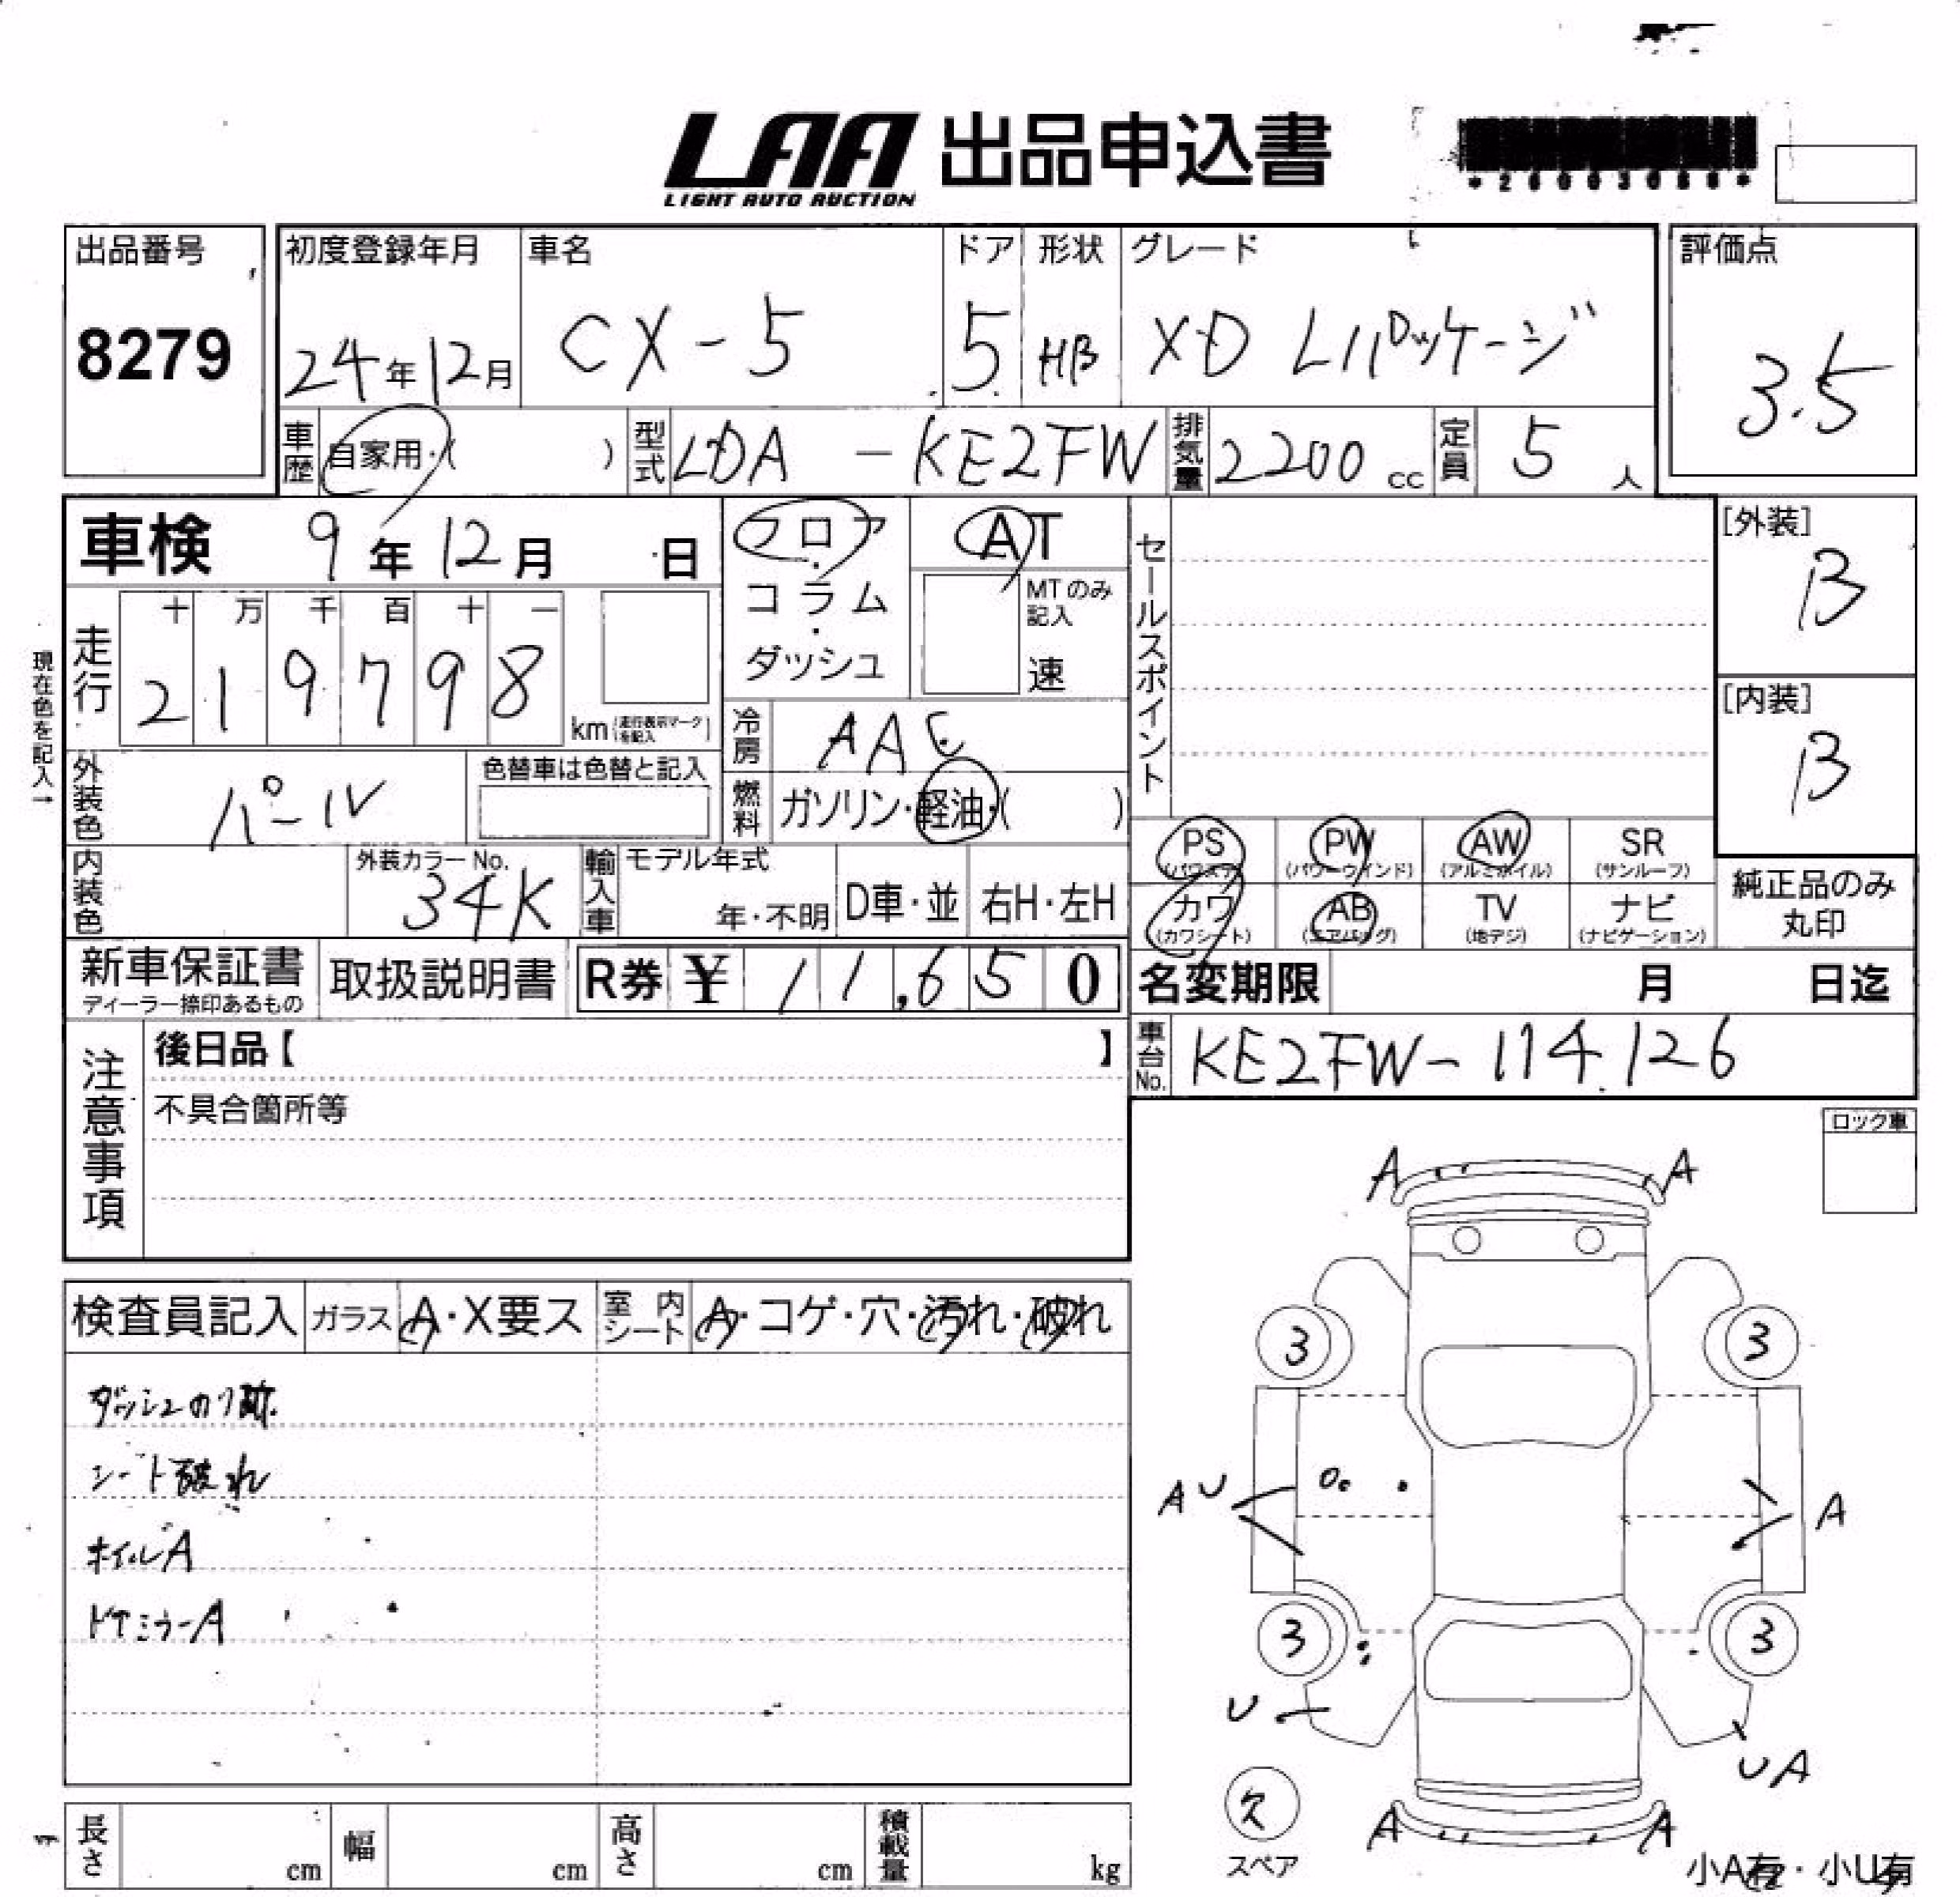 LAA 出品申込書
LIGHT AUTO AUCTION
出品番号
8279
初度登録年月
24年12月
車名
CX-5
ドア
5
形状
HB
グレード
XD Lパッケージ
評価点
3.5
車歴 自家用・( )
型式 LDA - KE2FW
排気量 2200 cc
定員 5 人
車検 9年12月 日
フロア・コラム・ダッシュ
AT
MTのみ記入
速
セールスポイント
[外装]
B
[内装]
B
現在色を記入→
走行
十 万 千 百 十 一
2 1 9 7 9 8
km (走行表示マークを記入)
冷房 AAC
燃料 ガソリン・軽油・( )
外装色 パール
色替車は色替と記入
内装色
外装カラーNo.
34K
輸入車
モデル年式
年・不明
D車・並
右H・左H
PS (パワステ)
PW (パワーウインド)
AW (アルミホイル)
SR (サンルーフ)
カワ (カワシート)
AB (エアバッグ)
TV (地デジ)
ナビ (ナビゲーション)
純正品のみ丸印
新車保証書
ディーラー捺印あるもの
取扱説明書
R券 ¥ 11,650
名変期限 月 日迄
車台No. KE2FW-114126
注意事項
後日品【 】
不具合箇所等
ロック車
検査員記入
ガラス A・X要ス
室内シート A・コゲ・穴・汚れ・破れ
ダッシュのり跡
シート破れ
ホイルA
ドアミラーA
A A
3 3
AU A
3 3
U UA
欠
スペア
A A
小A有・小U有
長さ cm
幅 cm
高さ cm
積載量 kg